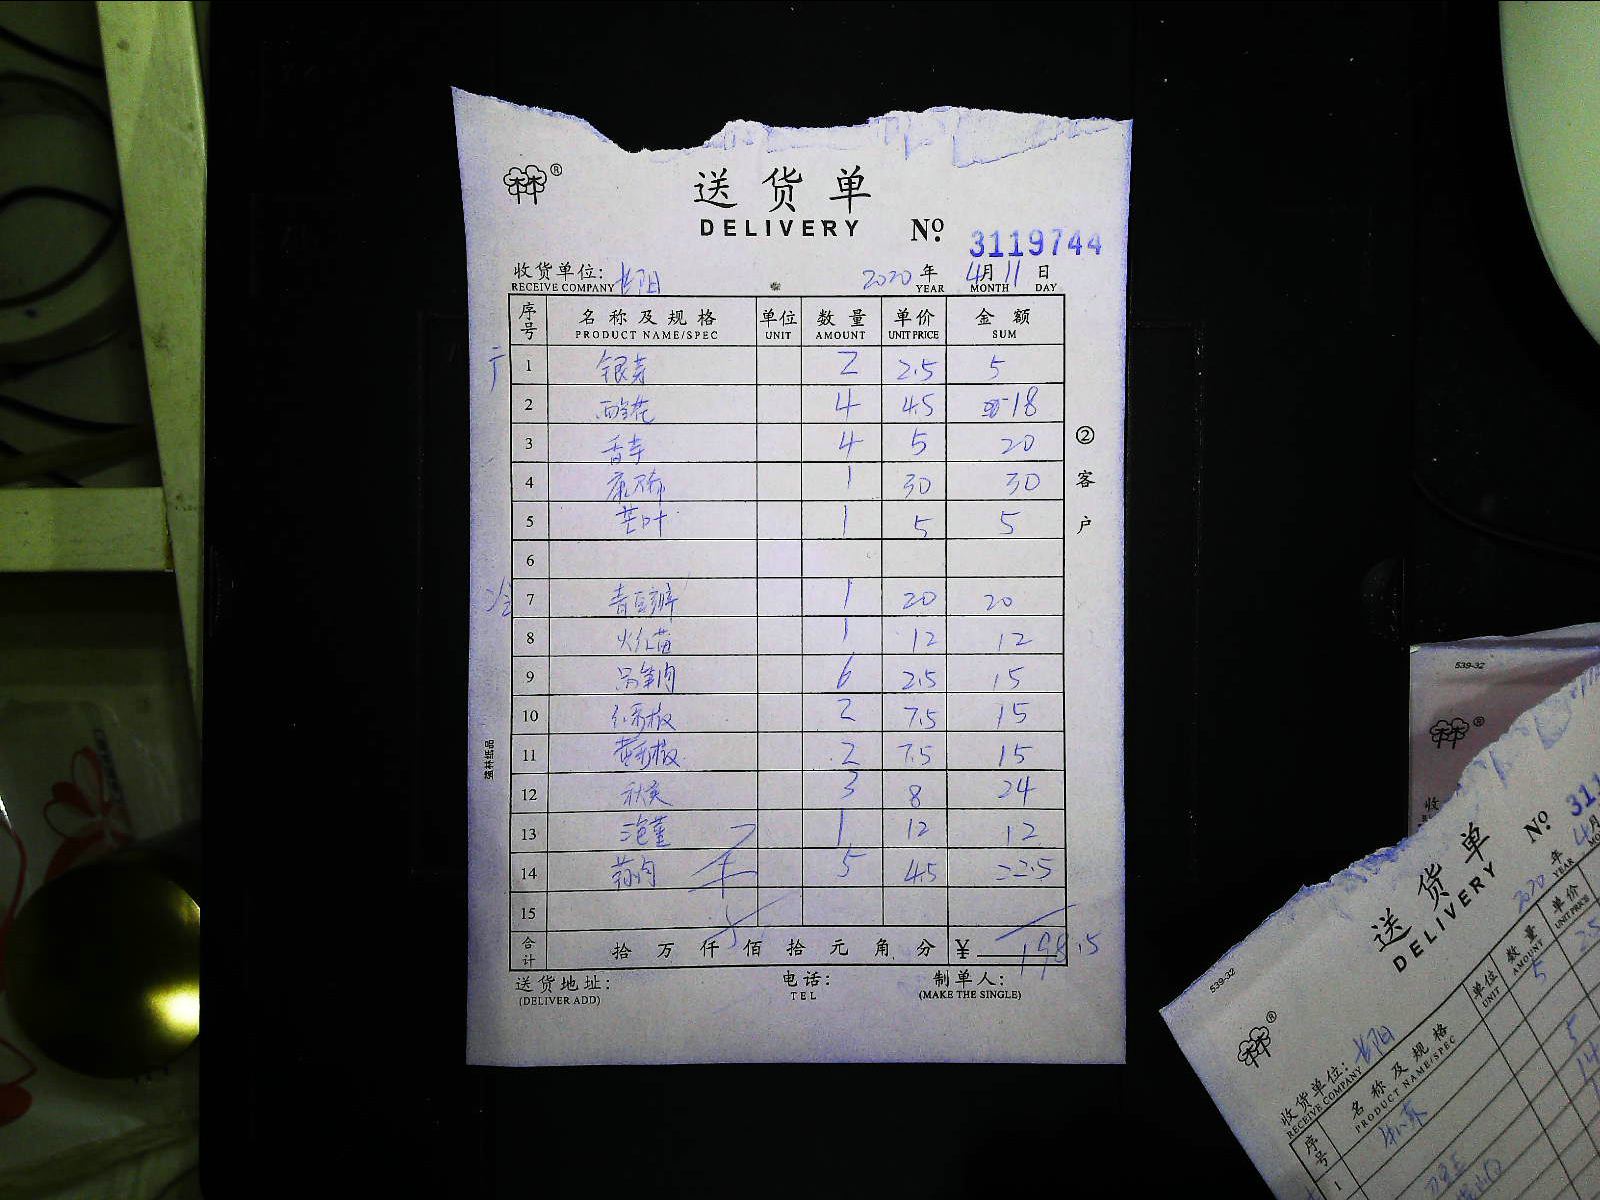 送货单
DELIVERY
№ 3119744
收货单位: 长阳 2020 年 4月 11 日
RECEIVE COMPANY YEAR MONTH DAY
序号 名称及规格 单位 数量 单价 金额
PRODUCT NAME/SPEC UNIT AMOUNT UNIT PRICE SUM
1 银芽 2 2.5 5
2 西兰花 4 4.5 18
3 香芹 4 5 20
4 1 30 30
5 芒叶 1 5 5
6
7 青豆瓣 1 20 20
8 火红苗 1 12 12
9 6 2.5 15
10 红彩椒 2 7.5 15
11 黄彩椒 2 7.5 15
12 秋葵 3 8 24
13 1 12 12
14 5 4.5 22.5
15
合计 拾 万 仟 佰 拾 元 角 分 ¥ 198.5
送货地址: 电话: 制单人:
(DELIVER ADD) TEL (MAKE THE SINGLE)
② 客户
强林纸品
539-32
收
539-32
送货单
DELIVERY
№ 311
2020 年 4月
YEAR
收货单位: 长阳
RECEIVE COMPANY
序号 名称及规格 单位 数量 单价
PRODUCT NAME/SPEC UNIT AMOUNT UNIT PRICE
1 5 25
5
14